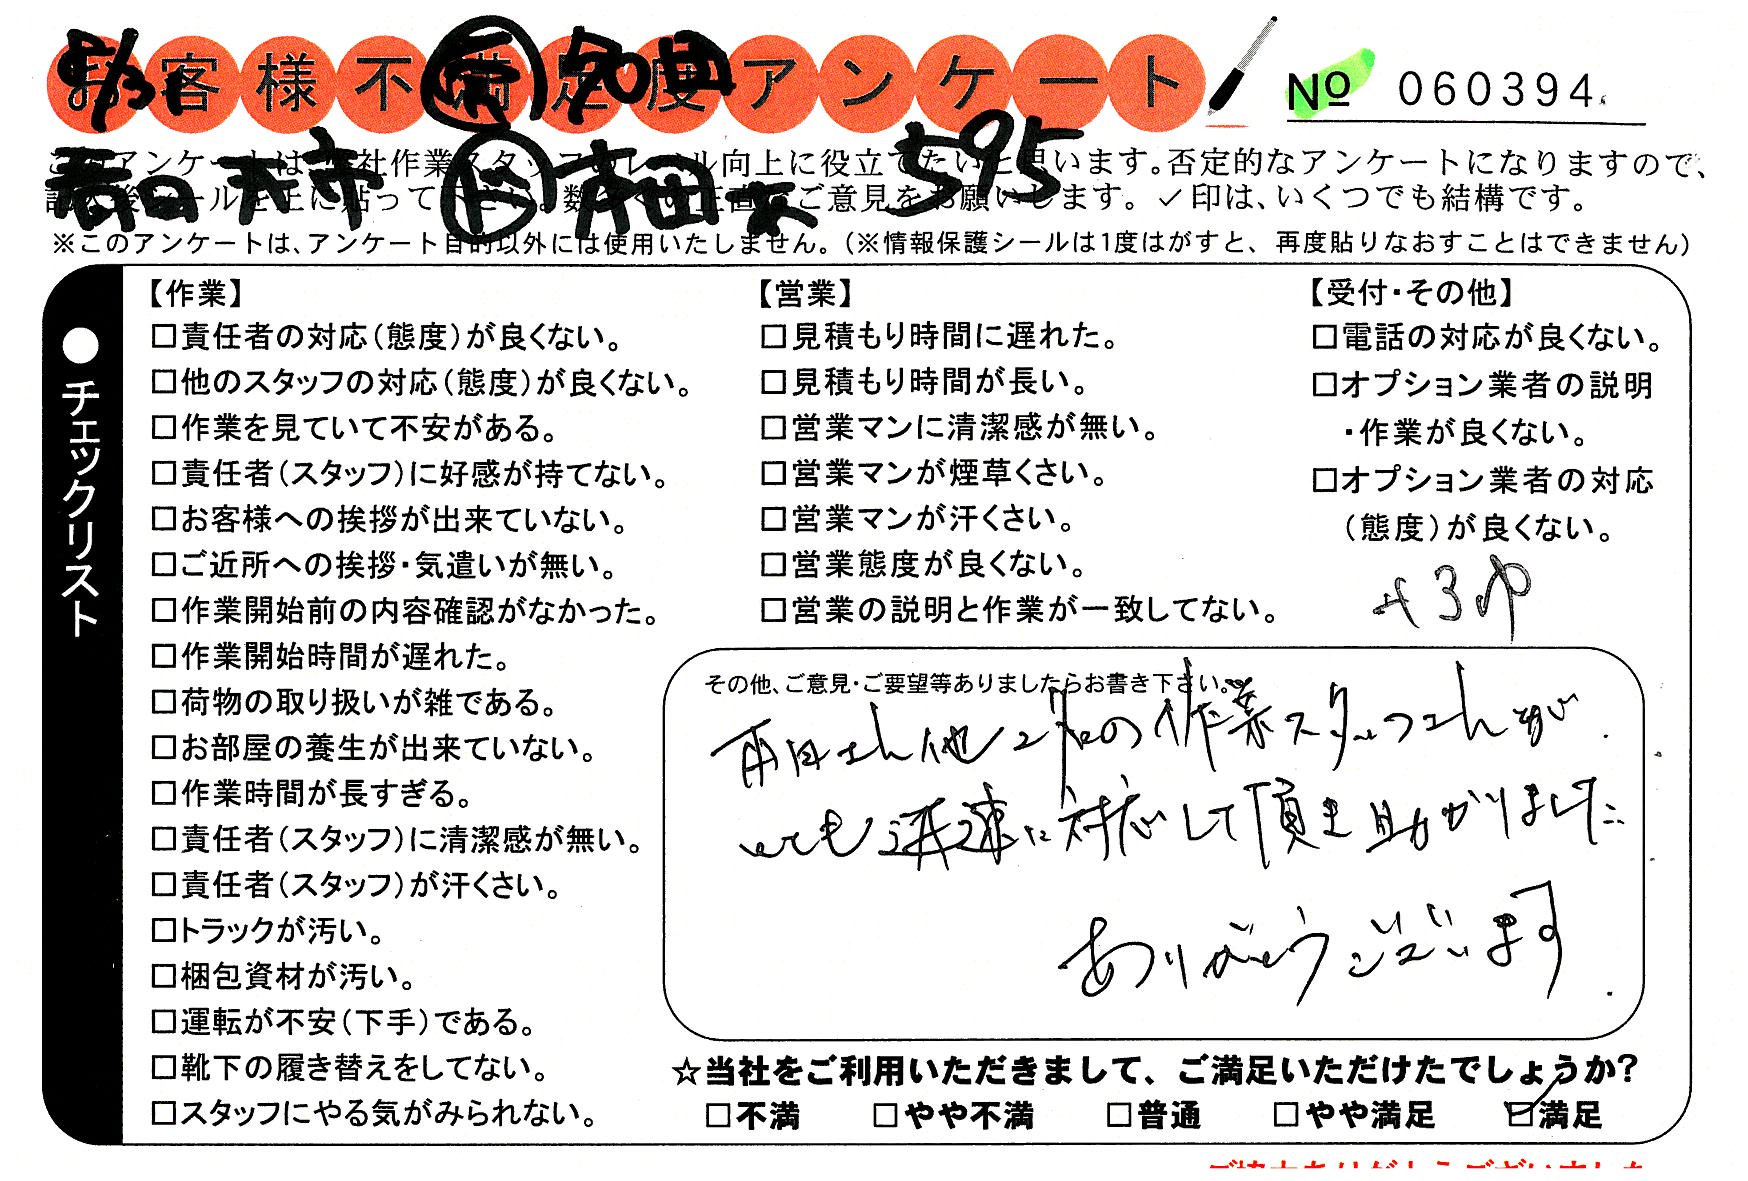 お客様不満足度アンケート
№ 060394
5/31
595
このアンケートは、当社作業スタッフのレベル向上に役立てたいと思います。否定的なアンケートになりますので、
記入後シールを上に貼って下さい。数多くの正直なご意見をお願いします。✓印は、いくつでも結構です。
※このアンケートは、アンケート目的以外には使用いたしません。(※情報保護シールは1度はがすと、再度貼りなおすことはできません)
●チェックリスト
【作業】
□責任者の対応(態度)が良くない。
□他のスタッフの対応(態度)が良くない。
□作業を見ていて不安がある。
□責任者(スタッフ)に好感が持てない。
□お客様への挨拶が出来ていない。
□ご近所への挨拶・気遣いが無い。
□作業開始前の内容確認がなかった。
□作業開始時間が遅れた。
□荷物の取り扱いが雑である。
□お部屋の養生が出来ていない。
□作業時間が長すぎる。
□責任者(スタッフ)に清潔感が無い。
□責任者(スタッフ)が汗くさい。
□トラックが汚い。
□梱包資材が汚い。
□運転が不安(下手)である。
□靴下の履き替えをしてない。
□スタッフにやる気がみられない。
【営業】
□見積もり時間に遅れた。
□見積もり時間が長い。
□営業マンに清潔感が無い。
□営業マンが煙草くさい。
□営業マンが汗くさい。
□営業態度が良くない。
□営業の説明と作業が一致してない。
【受付・その他】
□電話の対応が良くない。
□オプション業者の説明
・作業が良くない。
□オプション業者の対応
(態度)が良くない。
その他、ご意見・ご要望等ありましたらお書き下さい。
さん他2名の作業スタッフさんが
とても迅速に対応して頂き助かりました
ありがとうございます
☆当社をご利用いただきまして、ご満足いただけたでしょうか?
□不満 □やや不満 □普通 □やや満足 ☑満足
ご協力ありがとうございました